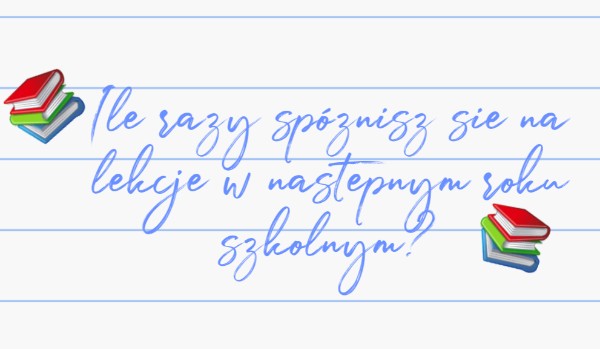 Ile razy spóznisz sie na
lekcje w nastepnym roku
szkolnym?